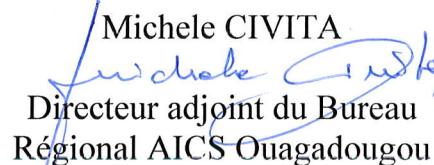 Michele CIVITA
Michele Civita
Directeur adjoint du Bureau
Régional AICS Ouagadougou